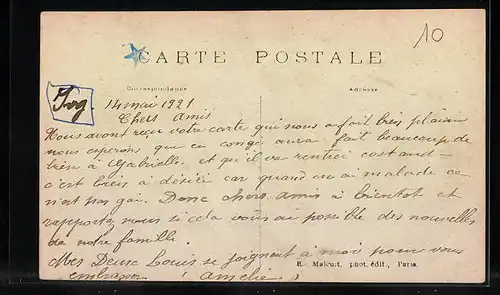 10
CARTE POSTALE
Correspondance
Adresse
14 mai 1921
Chers Amis
Nous avont reçu votre carte qui nous a fait bien plaisir
nous esperons que ce congé aura fait beaucoup de
bien a Gabrielle. et qu'il va rentrée costaud
c'est bien a désiré car quand on ai malade ce
n'ai pas gai. Donc chers amis a bientot et
rapportez nous si cela vous ai possible des nouvelles
de notre famille.
Mes Deux Louis se joignent à moi pour vous
embrasser Amelie
E. Malcuit, phot. édit., Paris